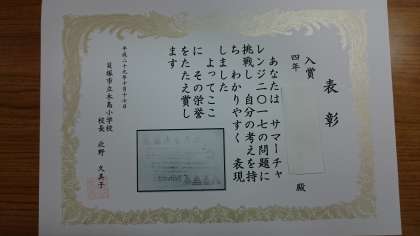 表彰
入賞
四年
殿
あなたは サマーチャ
レンジ二〇一七の問題に
挑戦し 自分の考えを持
ち わかりやすく 表現
しました
よってここ
に その栄誉
をたたえ賞し
ます
平成二十九年十月十七日
貝塚市立木島小学校
校長 北野 久美子